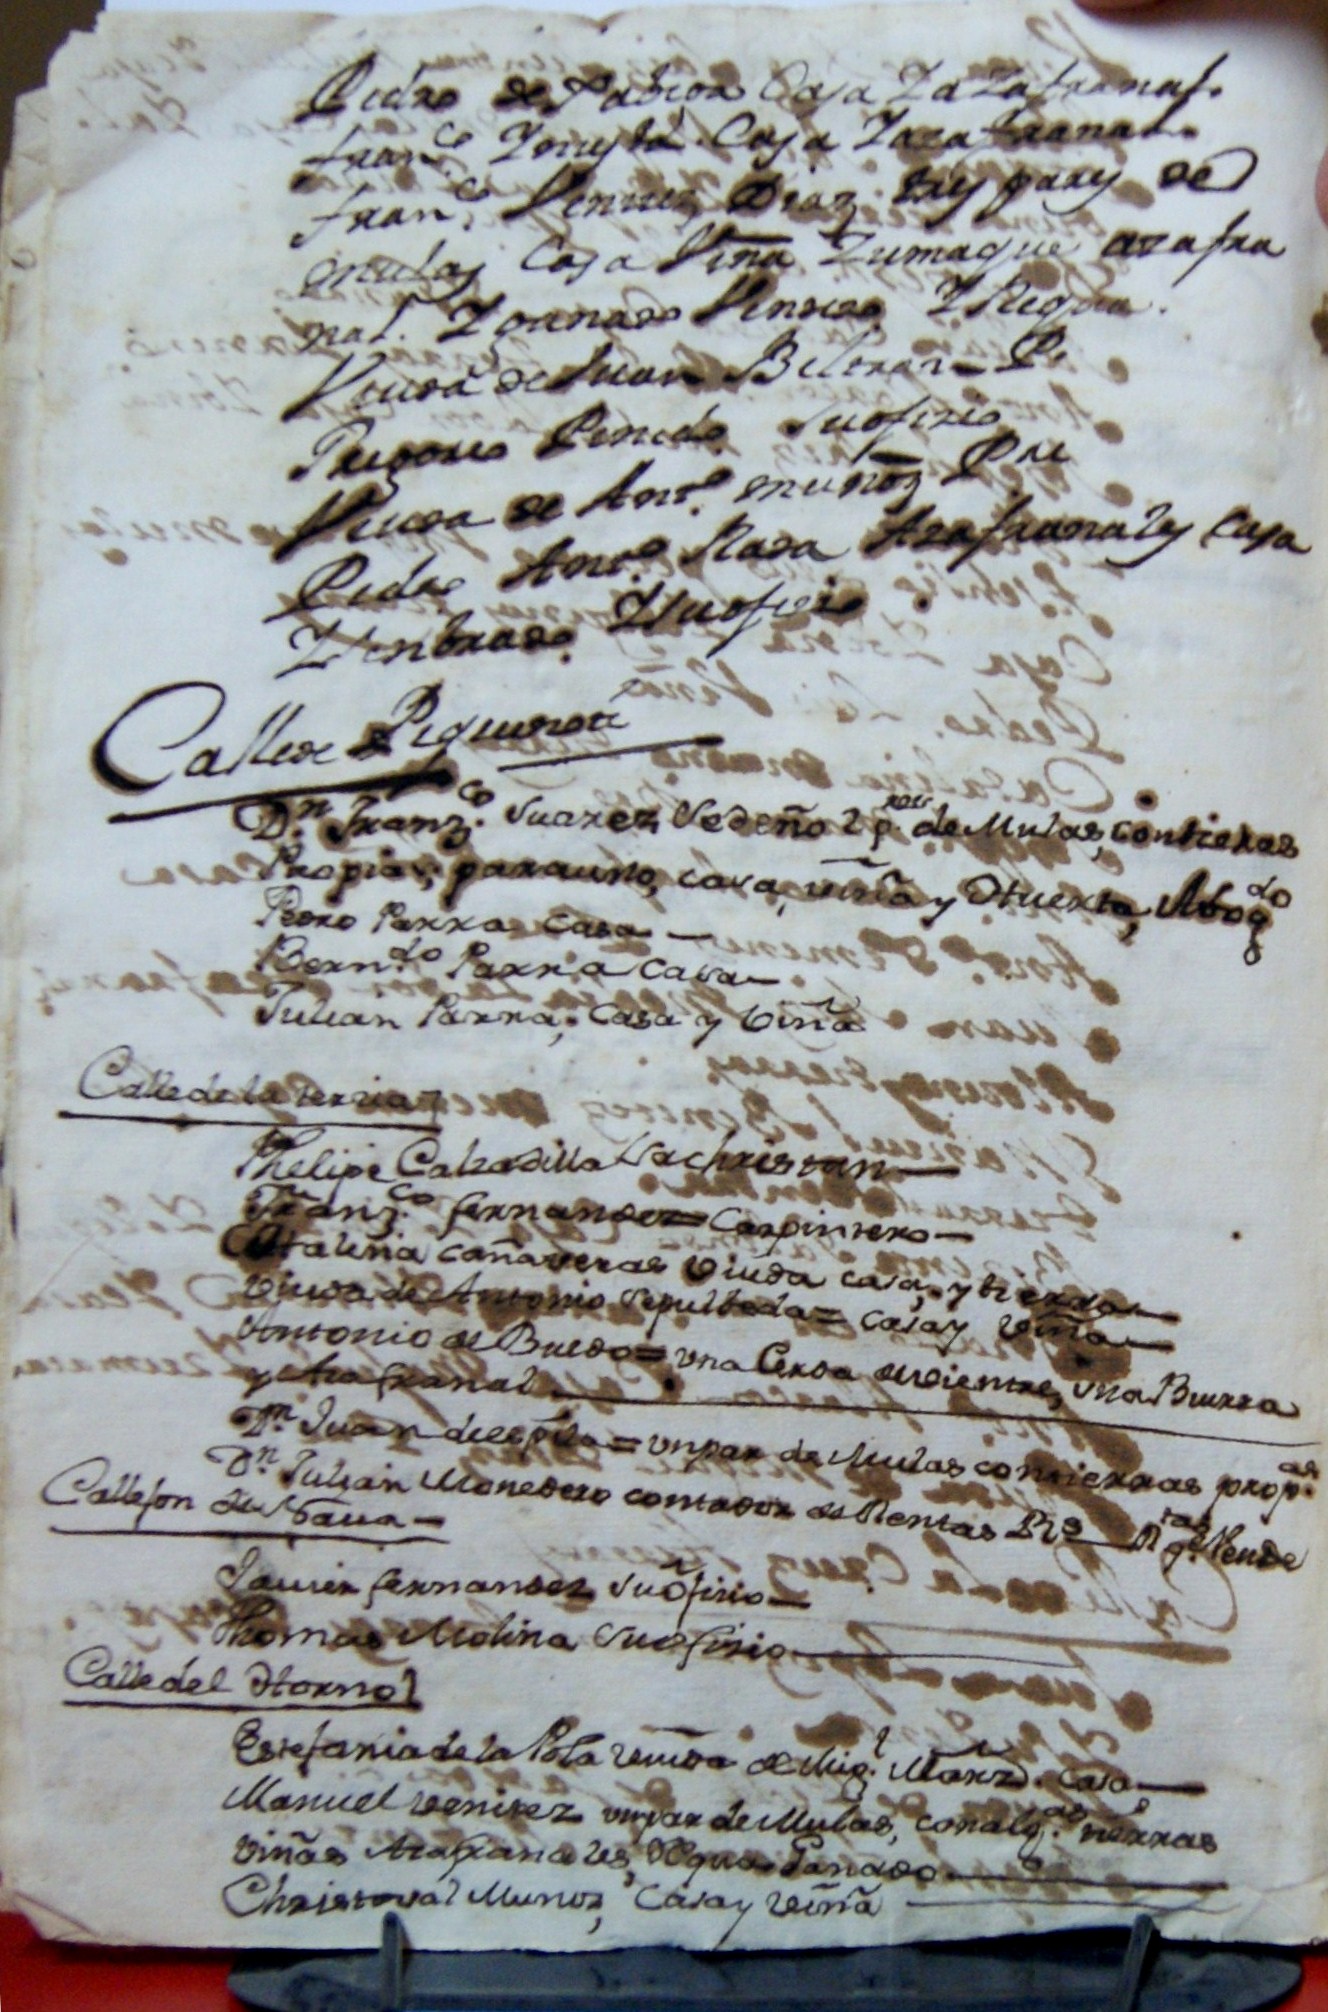 Pedro de Casa Y Azafranal.
fran.co Casa Yazafranal.
fran.co Diaz trs pares de
mulas Casa Viña Zumaque azafra
nal. Yganado Yegua.
Viuda de Juan Beltran Pe
Gregorio Suofizio
Viuda de Ant.o muñoz Pre
Pedro Ant.o Azafranals Casa
Ysenbrado Ysuofizio
Calle de
D.n Franz.co Suarez Sedeño 2 p.res de Mulas, contierras
Propias, para uno, casa, viña y Huerta, Abog.do
Pedro Parra casa
Bern.do Parra casa
Julian Parra, casa y viña
Calle de la terzia
Phelipe Calzadilla Sachristan
Franz.co fernandez = Carpintero
Catalina cañaveras viuda casa, y tienda
Viuda de Antonio Sepulbeda = casa y viña
Antonio de Buedo = una Cerda de vientre, una Burra
y Azafranal
D.n Juan de = un par de Mulas contierras prop.as
D.n Julian Monedero contador de Rentas R.s
Callejon de Nava
Javier fernandez Suofizio
Thomas Molina Suofizio
Calle del Horno
Estefania de la Pola viuda de Mig.l Marz. casa
Manuel venitez un par de Mulas, con alg.as tierras
viñas Azafranales, Yegua Ganado
Christoval Munoz, Casa y viña